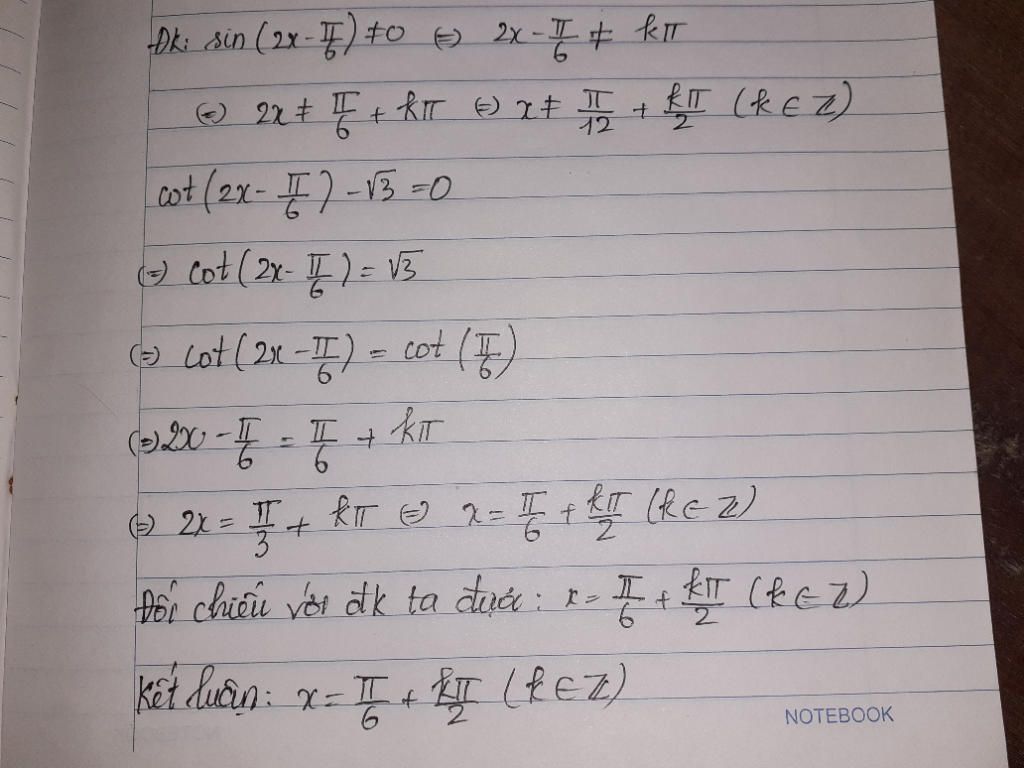 Đk: sin(2x - π/6) ≠ 0 (=) 2x - π/6 ≠ kπ
(=) 2x ≠ π/6 + kπ (=) x ≠ π/12 + kπ/2 (k ∈ Z)
cot(2x - π/6) - √3 = 0
(=) cot(2x - π/6) = √3
(=) cot(2x - π/6) = cot(π/6)
(=) 2x - π/6 = π/6 + kπ
(=) 2x = π/3 + kπ (=) x = π/6 + kπ/2 (k ∈ Z)
Đối chiếu với đk ta được: x = π/6 + kπ/2 (k ∈ Z)
Kết luận: x = π/6 + kπ/2 (k ∈ Z)
NOTEBOOK